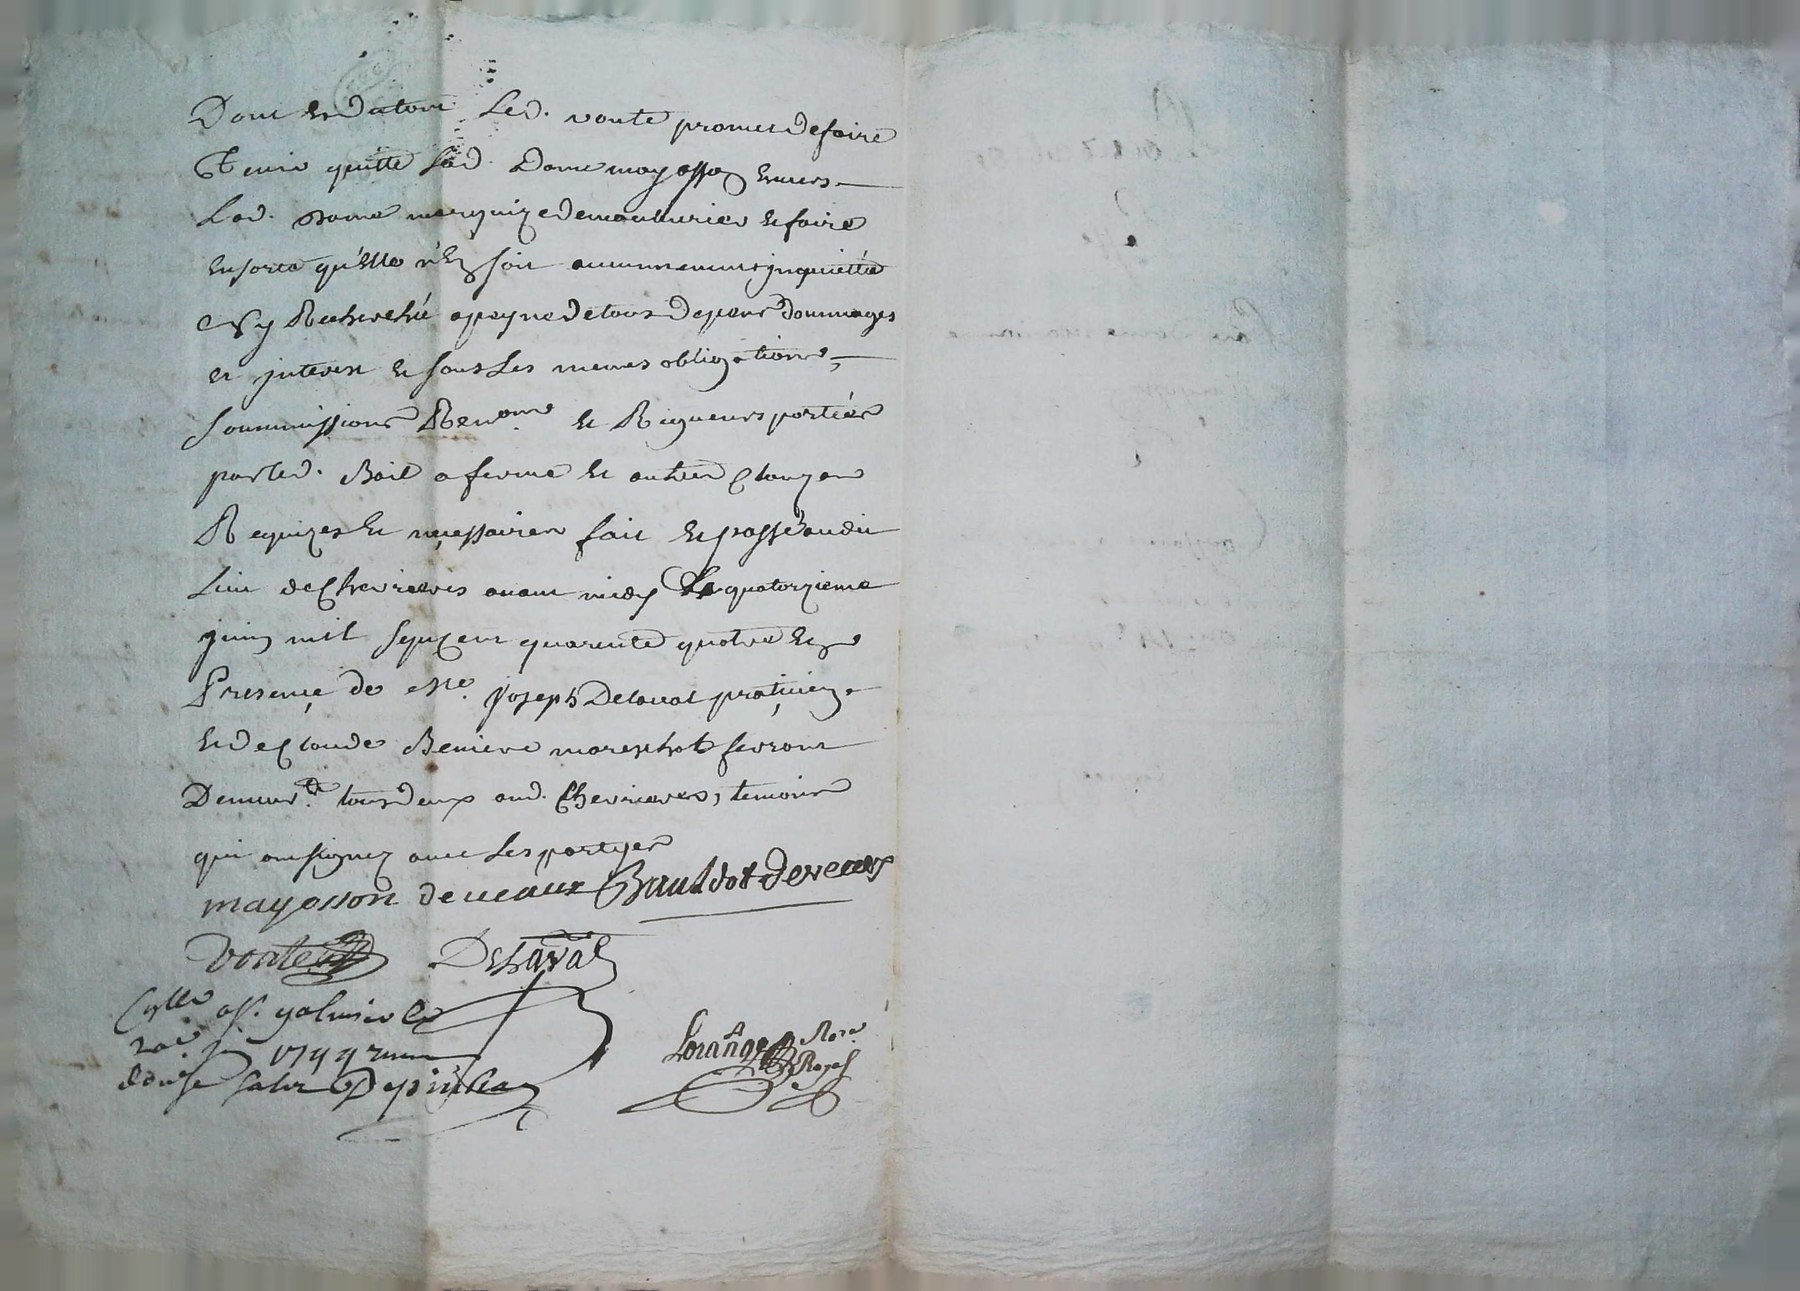 Dont Et du tout Led. voute promet de faire
Tenir quitte Lad. Dame mayosson Envers
Lad. Dame marquize de Et faire
En sorte qu'Elle n'En soit aucunement jnquiettée
Ny Recherchée a peyne de tous depens dommages
Et jnterest Et sous Les memes obligations,
Soummissions Ren.ons Et Rigueurs portées
par led. Bail a ferme Et autres Clauzes
Requizes Et neçessaires fait Et passé audit
Lieu de Chevrieres avant midy Le quatorzieme
juin mil sept cent quarente quatre En
Presençe de Me. joseph Delaval pratiçien
Et de Claude Beniere mareschal ferrant
Demeur.ts tous deux aud. Chevrieres, temoins
qui ont signez avec Les partyes
mayosson deveaux Bauldot deveaux
voute Delaval
Con.lle a St. galmier le
juin 1744 Reçu
douze sols Depinha
Lorange No.re Royal